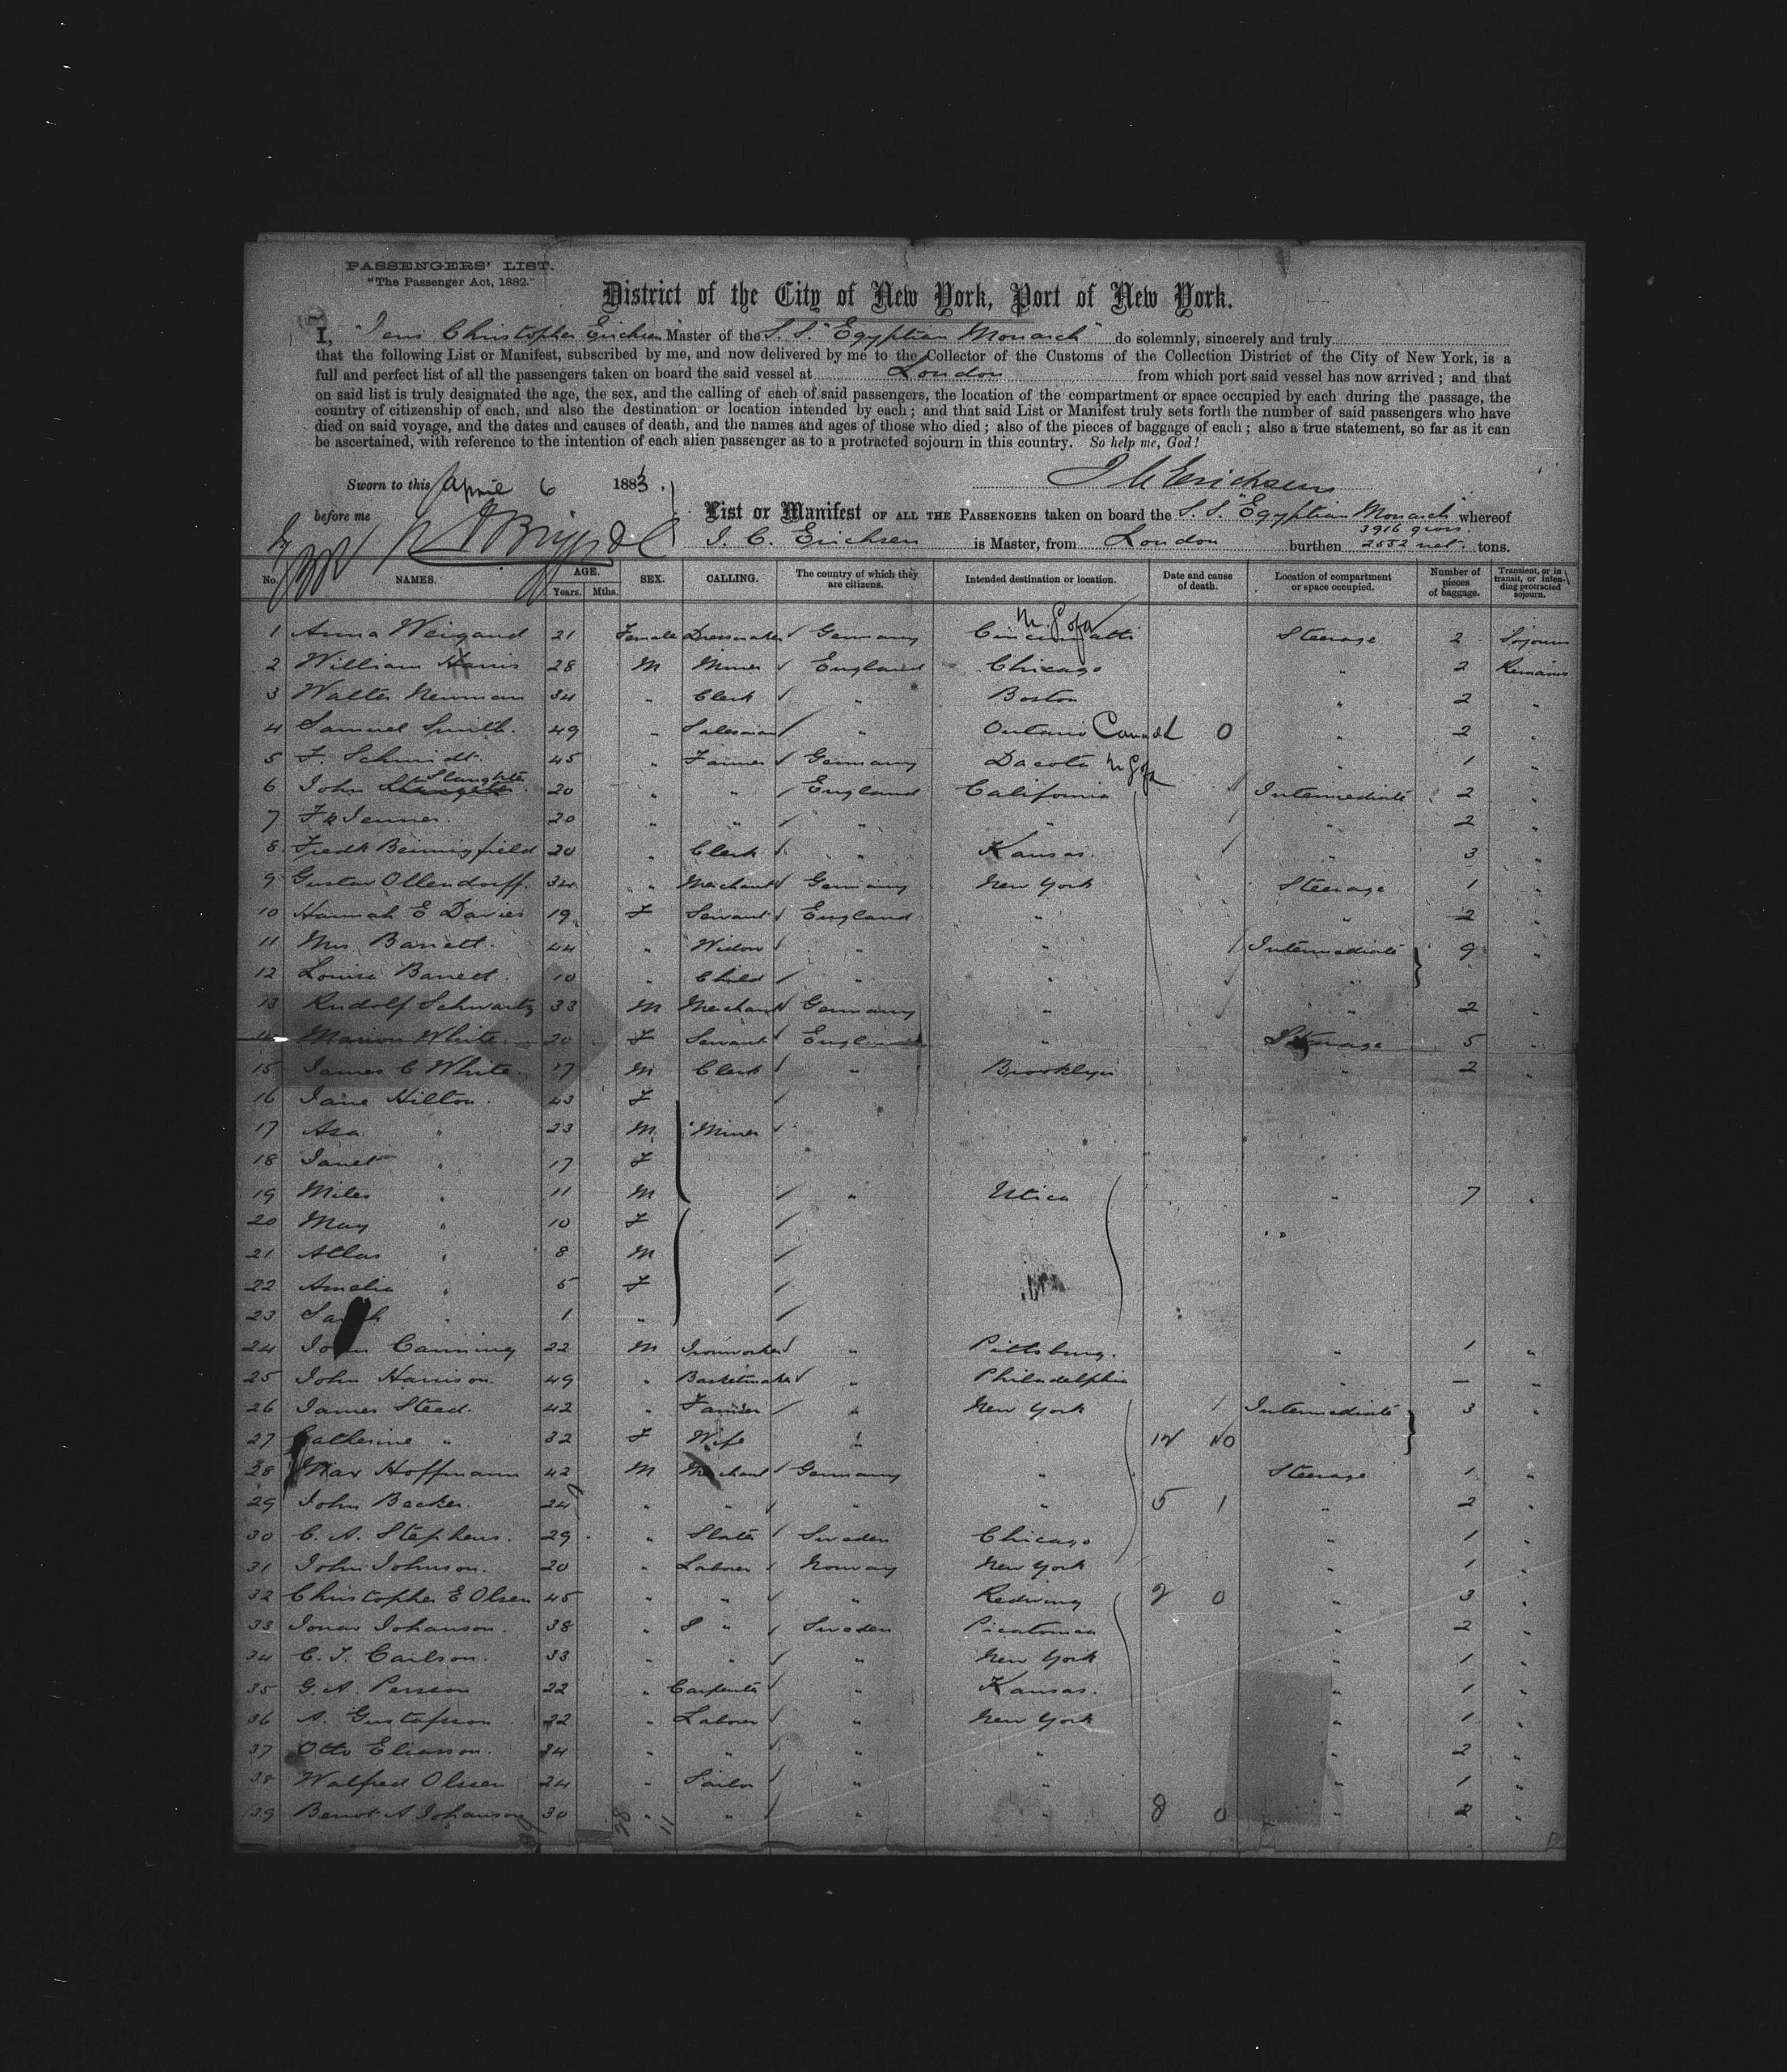 PASSENGERS' LIST.
"The Passenger Act, 1882."
District of the City of New York, Port of New York.
I, "Jens Christopher Erichsen" Master of the S. S. "Egyptian Monarch" do solemnly, sincerely and truly
that the following List or Manifest, subscribed by me, and now delivered by me to the Collector of the Customs of the Collection District of the City of New York, is a
full and perfect list of all the passengers taken on board the said vessel at London from which port said vessel has now arrived; and that
on said list is truly designated the age, the sex, and the calling of each of said passengers, the location of the compartment or space occupied by each during the passage, the
country of citizenship of each, and also the destination or location intended by each; and that said List or Manifest truly sets forth the number of said passengers who have
died on said voyage, and the dates and causes of death, and the names and ages of those who died; also of the pieces of baggage of each; also a true statement, so far as it can
be ascertained, with reference to the intention of each alien passenger as to a protracted sojourn in this country. So help me, God!
Sworn to this April 6 1883.
J C Erichsen
before me
List or Manifest OF ALL THE PASSENGERS taken on board the S. S. "Egyptian Monarch" whereof
J. C. Erichsen is Master, from London burthen 3916 gross. 2552 net. tons.
No. NAMES. AGE. Years. Mths. SEX. CALLING. The country of which they are citizens. Intended destination or location. Date and cause of death. Location of compartment or space occupied. Number of pieces of baggage. Transient, or in transit, or intending protracted sojourn.
1 Anna Weigand 21 Female Dressmaker Germany Cincinnatti Steerage 2 Sojourn
2 William Harris 28 M Miner England Chicago " 2 Remains
3 Walter Newman 34 " Clerk " Boston " 2 "
4 Samuel Smith. 49 " Salesman " Ontario Canada 0 " 2 "
5 F. Schmidt. 45 " Farmer Germany Dacota " 1 "
6 John Slaughter 20 " " England California Intermediate 2 "
7 Fk Jenner. 20 " " " " " 2 "
8 Fredk Benningfield 20 " Clerk " Kansas. " 3 "
9 Gustav Ollendorff. 34 " Merchant Germany New York Steerage 1 "
10 Hannah E Davies 19 F Servant England " " 2 "
11 Mrs Barrett. 44 " Widow " " Intermediate 9 "
12 Louisa Barrett. 10 " Child " " "
13 Rudolf Schwartz 33 M Merchant Germany " " 2 "
14 Marion White 20 F Servant England Steerage 5 "
15 James C White. 17 M Clerk " Brooklyn " 2 "
16 Jane Hilton. 43 F
17 Asa " 23 M. Miner
18 Janet " 17 F
19 Miles " 11 M " Utica " 7 "
20 May " 10 F
21 Atlas " 8 M
22 Amelia " 5 F
23 Sarah " 1 "
24 John Canning 22 M Ironworker " Pittsburg. " 1 "
25 John Harrison 49 " Basketmaker " Philadelphia " — "
26 James Steed. 42 " Farrier " New York Intermediate 3 "
27 Catherine " 32 F Wife " "
28 Max Hoffmann 42 M Merchant Germany " Steerage 1 "
29 John Becker. 24 " " " " 5 1 " 2 "
30 C. A. Stephens. 29 " Slater Sweden Chicago " 1 "
31 John Johnson. 20 " Laborer Norway New York " 1 "
32 Christopher E Olsen 45 " " " Redwing 2 0 " 3 "
33 Jonas Johanson. 38 " " Sweden " 2 "
34 C. J. Carlson. 33 " " " New York " 1 "
35 G. A. Persson 22 " Carpenter " Kansas. " 1 "
36 A. Gustafsson 22 " Laborer " New York " 1 "
37 Otto Eliasson. 34 " " " " " 2 "
38 Walfred Olssen 24 " Sailor " " " 1 "
39 A Johanson 30 " " " " 8 0 " 2 "